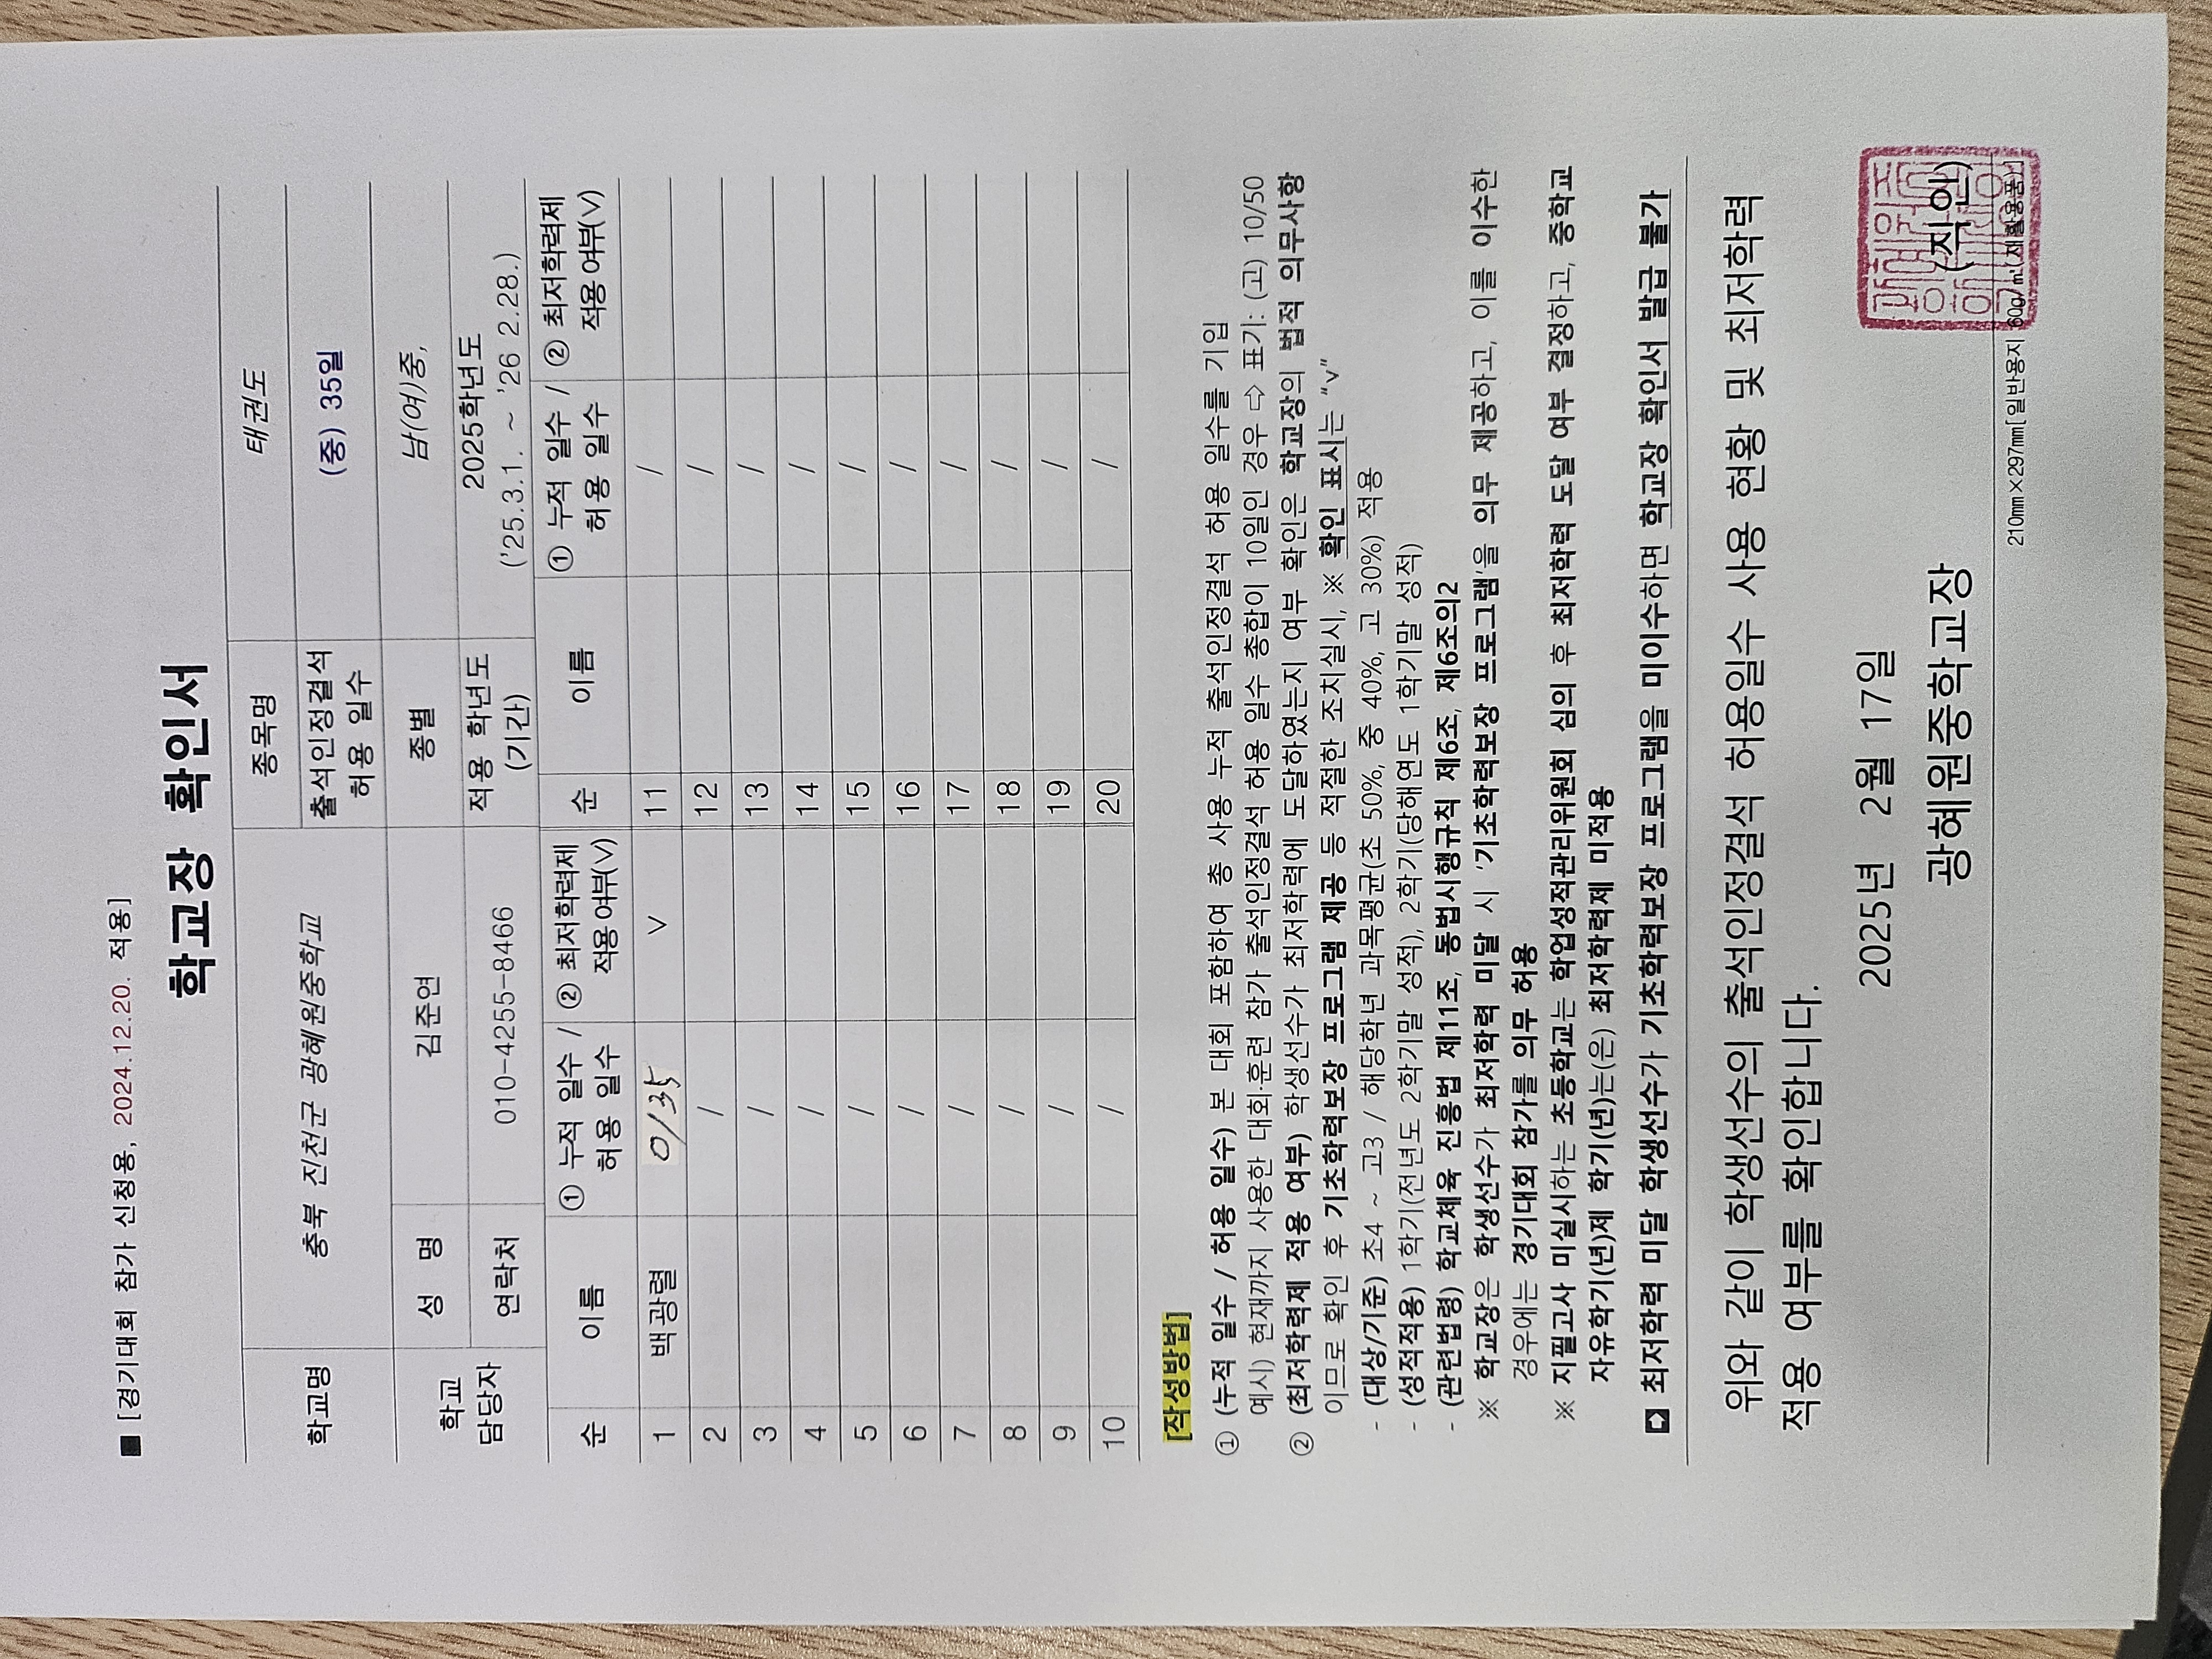 ■ [경기대회 참가 신청용, 2024.12.20. 적용]
학교장 확인서
학교명 충북 진천군 광혜원중학교 종목명 태권도
출석인정결석 허용 일수 (중) 35일
학교 담당자 성 명 김준연 종별 남(여)중,
연락처 010-4255-8466 적용 학년도 (기간) 2025학년도 ('25.3.1. ~ '26 2.28.)
순 이름 ① 누적 일수 / 허용 일수 ② 최저학력제 적용 여부(V) 순 이름 ① 누적 일수 / 허용 일수 ② 최저학력제 적용 여부(V)
1 백광렬 0/35 V 11 /
2 / 12 /
3 / 13 /
4 / 14 /
5 / 15 /
6 / 16 /
7 / 17 /
8 / 18 /
9 / 19 /
10 / 20 /
[작성방법]
① (누적 일수 / 허용 일수) 본 대회 포함하여 총 사용 누적 출석인정결석 허용 일수를 기입
예시) 현재까지 사용한 대회·훈련 참가 출석인정결석 허용 일수 총합이 10일인 경우 ⇨ 표기: (고) 10/50
② (최저학력제 적용 여부) 학생선수가 최저학력에 도달하였는지 여부 확인은 학교장의 법적 의무사항
이므로 확인 후 기초학력보장 프로그램 제공 등 적절한 조치실시, ※ 확인 표시는 "v"
- (대상/기준) 초4 ~ 고3 / 해당학년 과목평균(초 50%, 중 40%, 고 30%) 적용
- (성적적용) 1학기(전년도 2학기말 성적), 2학기(당해연도 1학기말 성적)
- (관련법령) 학교체육 진흥법 제11조, 동법시행규칙 제6조, 제6조의2
※ 학교장은 학생선수가 최저학력 미달 시 '기초학력보장 프로그램'을 의무 제공하고, 이를 이수한
경우에는 경기대회 참가를 의무 허용
※ 지필고사 미실시하는 초등학교는 학업성적관리위원회 심의 후 최저학력 도달 여부 결정하고, 중학교
자유학기(년)제 학기(년)는(은) 최저학력제 미적용
➡ 최저학력 미달 학생선수가 기초학력보장 프로그램을 미이수하면 학교장 확인서 발급 불가
위와 같이 학생선수의 출석인정결석 허용일수 사용 현황 및 최저학력
적용 여부를 확인합니다.
2025년 2월 17일
광혜원중학교장 (직인)
210mm×297mm[일반용지 60g/㎡(재활용품)]